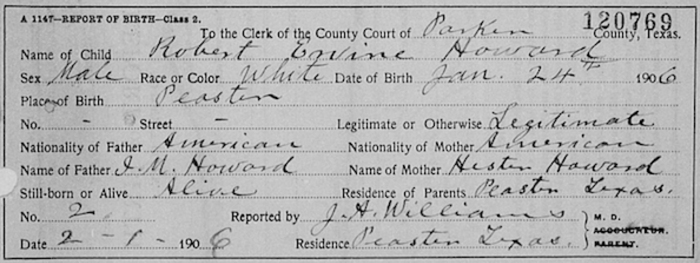 A 1147—REPORT OF BIRTH—Class 2.
120769
To the Clerk of the County Court of Parker County, Texas.
Name of Child Robert Ervine Howard
Sex Male Race or Color White Date of Birth Jan. 24th 1906
Place of Birth Peaster
No. - Street - Legitimate or Otherwise Legitimate
Nationality of Father American Nationality of Mother American
Name of Father I. M. Howard Name of Mother Hester Howard
Still-born or Alive Alive Residence of Parents Peaster Texas.
No. 2. Reported by J. A. Williams } M. D.
ACCOUCHEUR.
Date 2-1-1906 Residence Peaster Texas. PARENT.